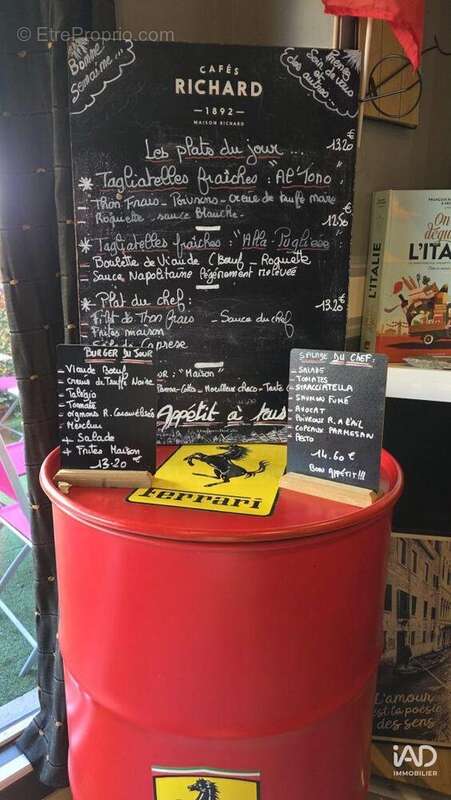 ©EtreProprio.com
Bonne
Semaine...
CAFÉS
RICHARD
1892
MAISON RICHARD
Prenez
Soin de vous
et
des autres...
Les plats du jour ...
13.20
* Tagliatelles fraîches : "Al Tono"
Thon Frais - Poivrons - creme de truffe noire
Roquette - sauce Blanche.
12.50
* Tagliatelles fraîches : "Alla Pugliese"
Boulette de Viande (Bœuf - Roquette
Sauce Napolitaine légèrement relevée
* Plat du chef :
13.20€
Filet de Thon Frais - Sauce du chef
Frites maison
Caprese
"Maison"
Panna-Cotta - Moelleux choco - Tarte
Appétit à tous
BURGER DU JOUR
- Viande Bœuf
- Creme de Truffe Noire
- Taleggio
- Tomate
- oignons R. Caramélisés
- Mesclun
+ Salade
+ Frites Maison
13.20
SALADE DU CHEF.
- SALADE
- TOMATES
- STRACCIATELLA
- SAUMON FUMÉ
- AVOCAT
- POIVRONS R. A L'AIL
- COPEAUX PARMESAN
- PESTO
14.60€
BON APPÉTIT!!!
Ferrari
L'ITALIE
On
dégu
L'ITA
L'amour
est la poésie
des sens
iAD
IMMOBILIER